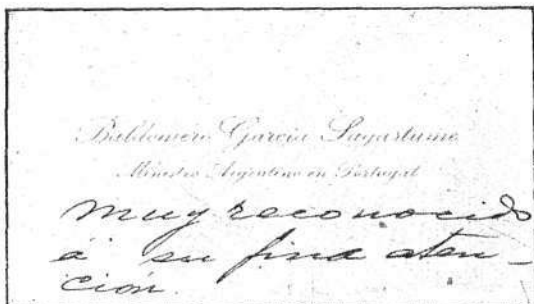 Baldomero García Sagastume
Ministro Argentino en Portugal
muy reconocido
á su fina aten-
ción.